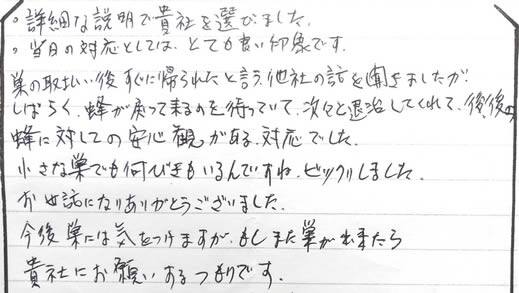 。詳細な説明で貴社を選びました。
。当日の対応としては、とても良い印象です。
巣の取払い後すぐに帰られたと言う他社の話を聞きましたが、
しばらく、蜂が戻って来るのを待っていて、次々と退治してくれて、後後の
蜂に対しての安心観がある対応でした。
小さな巣でも何びきもいるんですね、ビックリしました。
お世話になりありがとうございました。
今後巣には気をつけますが、もしまた巣が出来たら
貴社にお願いするつもりです。